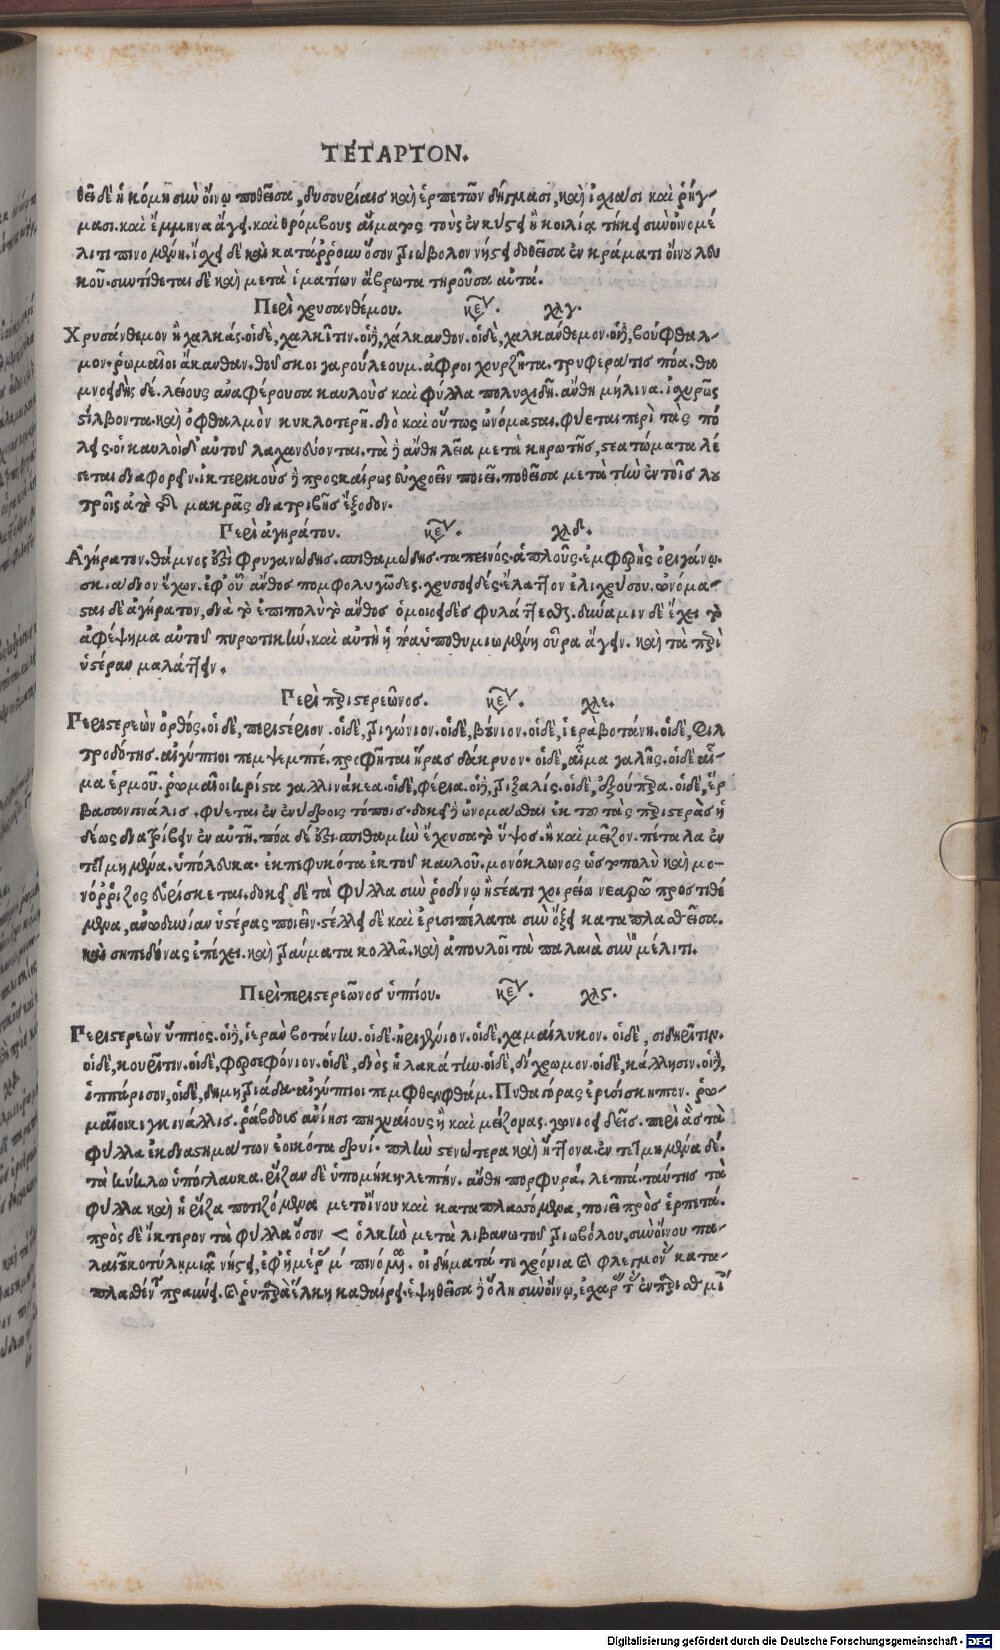 ΤΕΤΑΡΤΟΝ.
θεῖ δὲ ἡ κόμη σὺν οἴνῳ ποθεῖσα, δυσουρίαις καὶ ἑρπετῶν δήγμασι, καὶ ἰχιάσι καὶ ῥήγ-
μασι. καὶ ἔμμηνα ἄγει. καὶ θρόμβους αἵματος τοὺς ἐν κύστει ἢ κοιλίᾳ τήκει σὺν οἰνομέ
λιτι πινομένη. ἴσχει δὲ καὶ κατάρρουν ὅσον τριώβολον νήστει δοθεῖσα ἐν κράματι οἴνου λευ
κοῦ. συντίθεται δὲ καὶ μετὰ ἱματίων ἄβρωτα τηροῦσα αὐτά.
Περὶ χρυσανθέμου. κεφ. χλγ.
Χρυσάνθεμον ἢ χαλκάς. οἱ δὲ, χαλκῖτιν. οἱ δὲ, χάλκανθον. οἱ δὲ, χαλκάνθεμον. οἱ δὲ, βούφθαλ-
μον. ῥωμαῖοι ἄκανθαν. θοῦσκοι γαρούλεουμ. ἄφροι χουρζῆτα. τρυφερά τις πόα. θα
μνοειδὴς δέ. λείους ἀναφέρουσα καυλοὺς καὶ φύλλα πολυχιδῆ. ἄνθη μήλινα. ἰχυρῶς
στίλβοντα. καὶ ὀφθαλμὸν κυκλοτερῆ. διὸ καὶ οὕτως ὠνόμασται. φύεται περὶ τὰς πό
λεις. οἱ καυλοὶ δ' αὐτοῦ λαχανεύονται. τὰ δὲ ἄνθη λεῖα μετὰ κηρωτῆς, στεατώματα λέ
γεται διαφορεῖν. ἰκτερικοὺς δὲ προσκαίρως εὐχροεῖν ποιεῖ. ποθεῖσα μετὰ τὴν ἐν τοῖς λου
τροῖς διὰ μακρᾶς διατριβῆς ἔξοδον.
Περὶ ἀγηράτου. κεφ. χλδ.
Ἀγήρατον. θάμνος ἐστὶ φρυγανώδης. σπιθαμώδης. ταπεινός. ἁπλοῦς. ἐμφερὴς ὀριγάνῳ.
σκιάδιον ἔχων. ἐφ' οὗ ἄνθος πομφολυγῶδες. χρυσοειδές. ἔλαττον ἑλιχρύσου. ὠνόμα-
σται δὲ ἀγήρατον, διὰ τὸ ἐπιπολὺ τὸ ἄνθος ὁμοιοειδὲς φυλάττεσθαι. δύναμιν δὲ ἔχει τὸ
ἀφέψημα αὐτοῦ πυρωτικήν. καὶ αὐτὴ ἡ πόα ὑποθυμιωμένη οὖρα ἄγειν. καὶ τὰ περὶ
ὑστέραν μαλάττειν.
Περὶ περιστερεῶνος. κεφ. χλε.
Περιστερεὼν ὀρθός. οἱ δὲ, περιστέριον. οἱ δὲ, τριγώνιον. οἱ δὲ, βούνιον. οἱ δὲ, ἱερὰ βοτάνη. οἱ δὲ, φιλ
τροδότης. αἰγύπτιοι πεμψεμπτέ. προφῆται ἥρας δάκρυον. οἱ δὲ, αἷμα γαλῆς. οἱ δὲ αἷ-
μα ἑρμοῦ. ῥωμαῖοι κρίστα γαλλινάκεα. οἱ δὲ, φέρια. οἱ δὲ, τριξαλίς. οἱ δὲ, ἐξούπερα. οἱ δὲ, ἑρ
βασανγινάλις. φύεται ἐν ἐνύδροις τόποις. δοκεῖ δὲ ὠνομάσθαι ἐκ τοῦ τὰς περιστερὰς ἡ
δέως διατρίβειν ἐν αὐτῇ. πόα δέ ἐστι σπιθαμὴν ἔχουσα τὸ ὕψος. ἢ καὶ μεῖζον. πέταλα ἐν
τετμημένα. ὑπόλευκα. ἐκπεφυκότα ἐκ τοῦ καυλοῦ. μονόκλωνος ὡς τὸ πολὺ καὶ μο-
νόρριζος εὑρίσκεται. δοκεῖ δὲ τὰ φύλλα σὺν ῥοδίνῳ ἢ στέατι χοιρείῳ νεαρῷ προστιθέ
μενα, ἀνωδυνίαν ὑστέρας ποιεῖν. στέλλει δὲ καὶ ἐρισιπέλατα σὺν ὄξει καταπλασθεῖσα.
καὶ σηπεδόνας ἐπέχει. καὶ τραύματα κολλᾷ. καὶ ἀπουλοῖ τὰ παλαιὰ σὺν μέλιτι.
Περὶ περιστερεῶνος ὑπτίου. κεφ. χλς.
Περιστερεὼν ὕπτιος. οἱ δὲ, ἱερὰν βοτάνην. οἱ δὲ ἐριγένιον. οἱ δὲ, χαμαίλυκον. οἱ δὲ, σιδηρῖτιν.
οἱ δὲ, κουρῖτιν. οἱ δὲ, φερσεφόνιον. οἱ δὲ, διὸς ἠλακάτην. οἱ δὲ, δίχρωμον. οἱ δὲ, κάλλησιν. οἱ δὲ,
ἱππάρισον, οἱ δὲ, δημητριάδα. αἰγύπτιοι πεμφθενφθάμ. Πυθαγόρας ἐρισίσκηπτεν. ῥω-
μαῖοι κιγκινάλλις. ῥάβδους ἀνίησι πηχυαίους ἢ καὶ μείζονας. γωνιοειδεῖς. περὶ ἃς τὰ
φύλλα ἐκ διαστημάτων ἐοικότα δρυΐ. πλὴν στενώτερα καὶ ἥττονα. ἐντετμημένα δέ.
τὰ κύκλῳ ὑπόγλαυκα. ῥίζαν δὲ ὑπομήκη. λεπτήν. ἄνθη πορφυρᾶ. λεπτά. ταύτης τὰ
φύλλα καὶ ἡ ῥίζα ποτιζόμενα μετ' οἴνου καὶ καταπλασσόμενα, ποιεῖ πρὸς ἑρπετά.
πρὸς δὲ ἴκτερον τὰ φύλλα ὅσον < ὁλκὴν μετὰ λιβανωτοῦ τριωβόλου, σὺν οἴνου πα-
λαιοῦ κοτύλη μιᾷ νήστει, ἐφ' ἡμέρ μ' πινόμ. οἰδήματά τε χρόνια καὶ φλεγμον κατα-
πλασθέντ πραΰνει. καὶ ῥυπαρὰ ἕλκη καθαίρει. ἑψηθεῖσα δὲ ὅλη σὺν οἴνῳ, ἐσχάρ τ ἐν παρισθμί
Digitalisierung gefördert durch die Deutsche Forschungsgemeinschaft - DFG